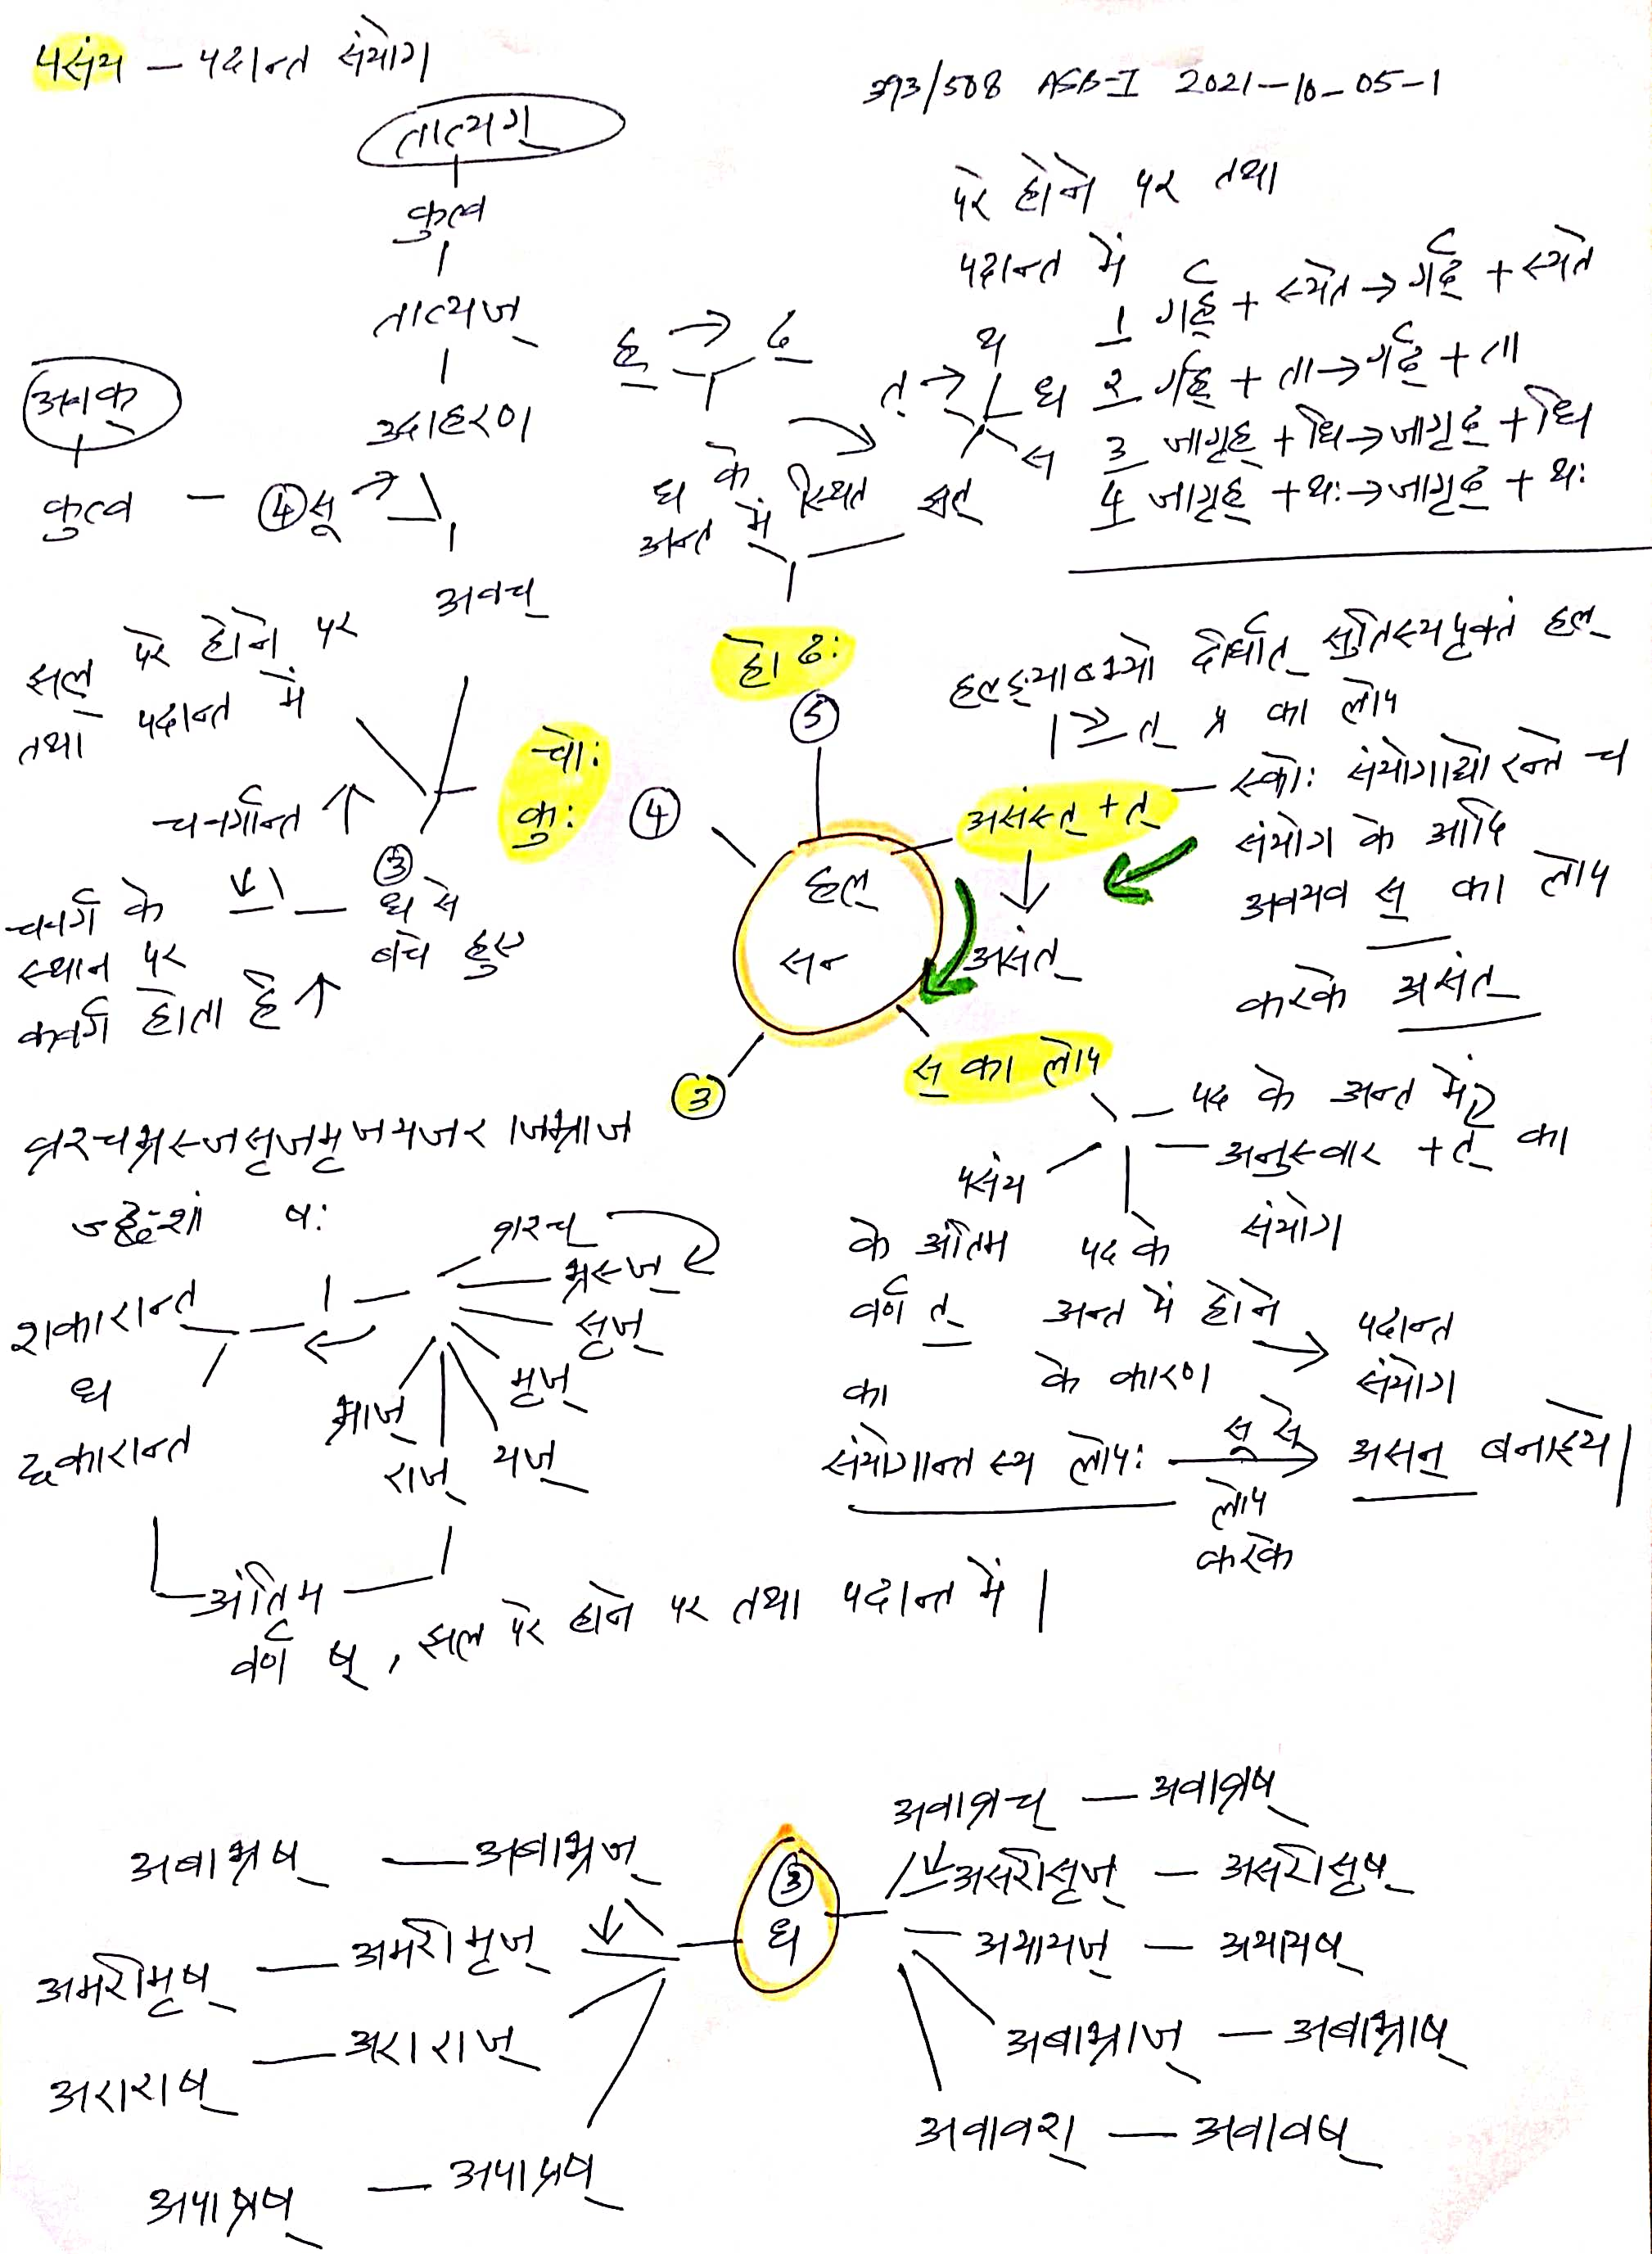 पसंय — पदान्त संयोग
393/508 ASB-I 2021-10-05-1
तात्यग्
कुत्व
तात्यज्
उदाहरण
अवक्
कुत्व — ④ सू →
अवच्
परे होने पर तथा
पदान्त में
1 गर्ह् + स्यते → गर्ढ् + स्यते
2 गर्ह् + ता → गर्ढ् + ता
3 जागृह् + धि → जागृढ् + धि
4 जागृह् + थः → जागृढ् + थः
ह् → ढ्
त् → थ ध स
ध के
अन्त में स्थित
हो ढः
⑤
झल् परे होने पर
तथा पदान्त में
चोः
कुः
④
चवर्गान्त ↑
③
चवर्ग के — ध से
स्थान पर बचे हुए
कवर्ग होता है ↑
हल्
सन्
हलङ्याब्भ्यो दीर्घात् सुतिस्यपृक्तं हल्
→ त् प्र का लोप
असंस्त् + त् — स्कोः संयोगाद्योरन्ते च
संयोग के आदि
अवयव स् का लोप
असंत्
करके असंत्
स् का लोप
पद के अन्त में
अनुस्वार + त् का
संयोग
पसंय
के अंतिम
वर्ण त्
का
पद के
अन्त में होने
के कारण
→ पदान्त
संयोग
संयोगान्तस्य लोपः सू से लोप करके → असन् बनाइये।
③
व्रश्चभ्रस्जसृजमृजयजराजभ्राज
च्छशां षः
व्रश्च्
भ्रस्ज्
सृज्
मृज्
यज्
राज्
भ्राज्
शकारान्त
ध
छकारान्त
अंतिम
वर्ण ष्, झल् परे होने पर तथा पदान्त में।
③
ध
अवाव्रच् — अवाव्रष्
असरीसृज् — असरीसृष्
अयायज् — अयायष्
अबाभ्राज् — अबाभ्राष्
अवावश् — अवावष्
अबाभ्रष् — अबाभ्रज्
अमरीमृष् — अमरीमृज्
अराराष् — अराराज्
अपाप्रष् — अपाप्रष्